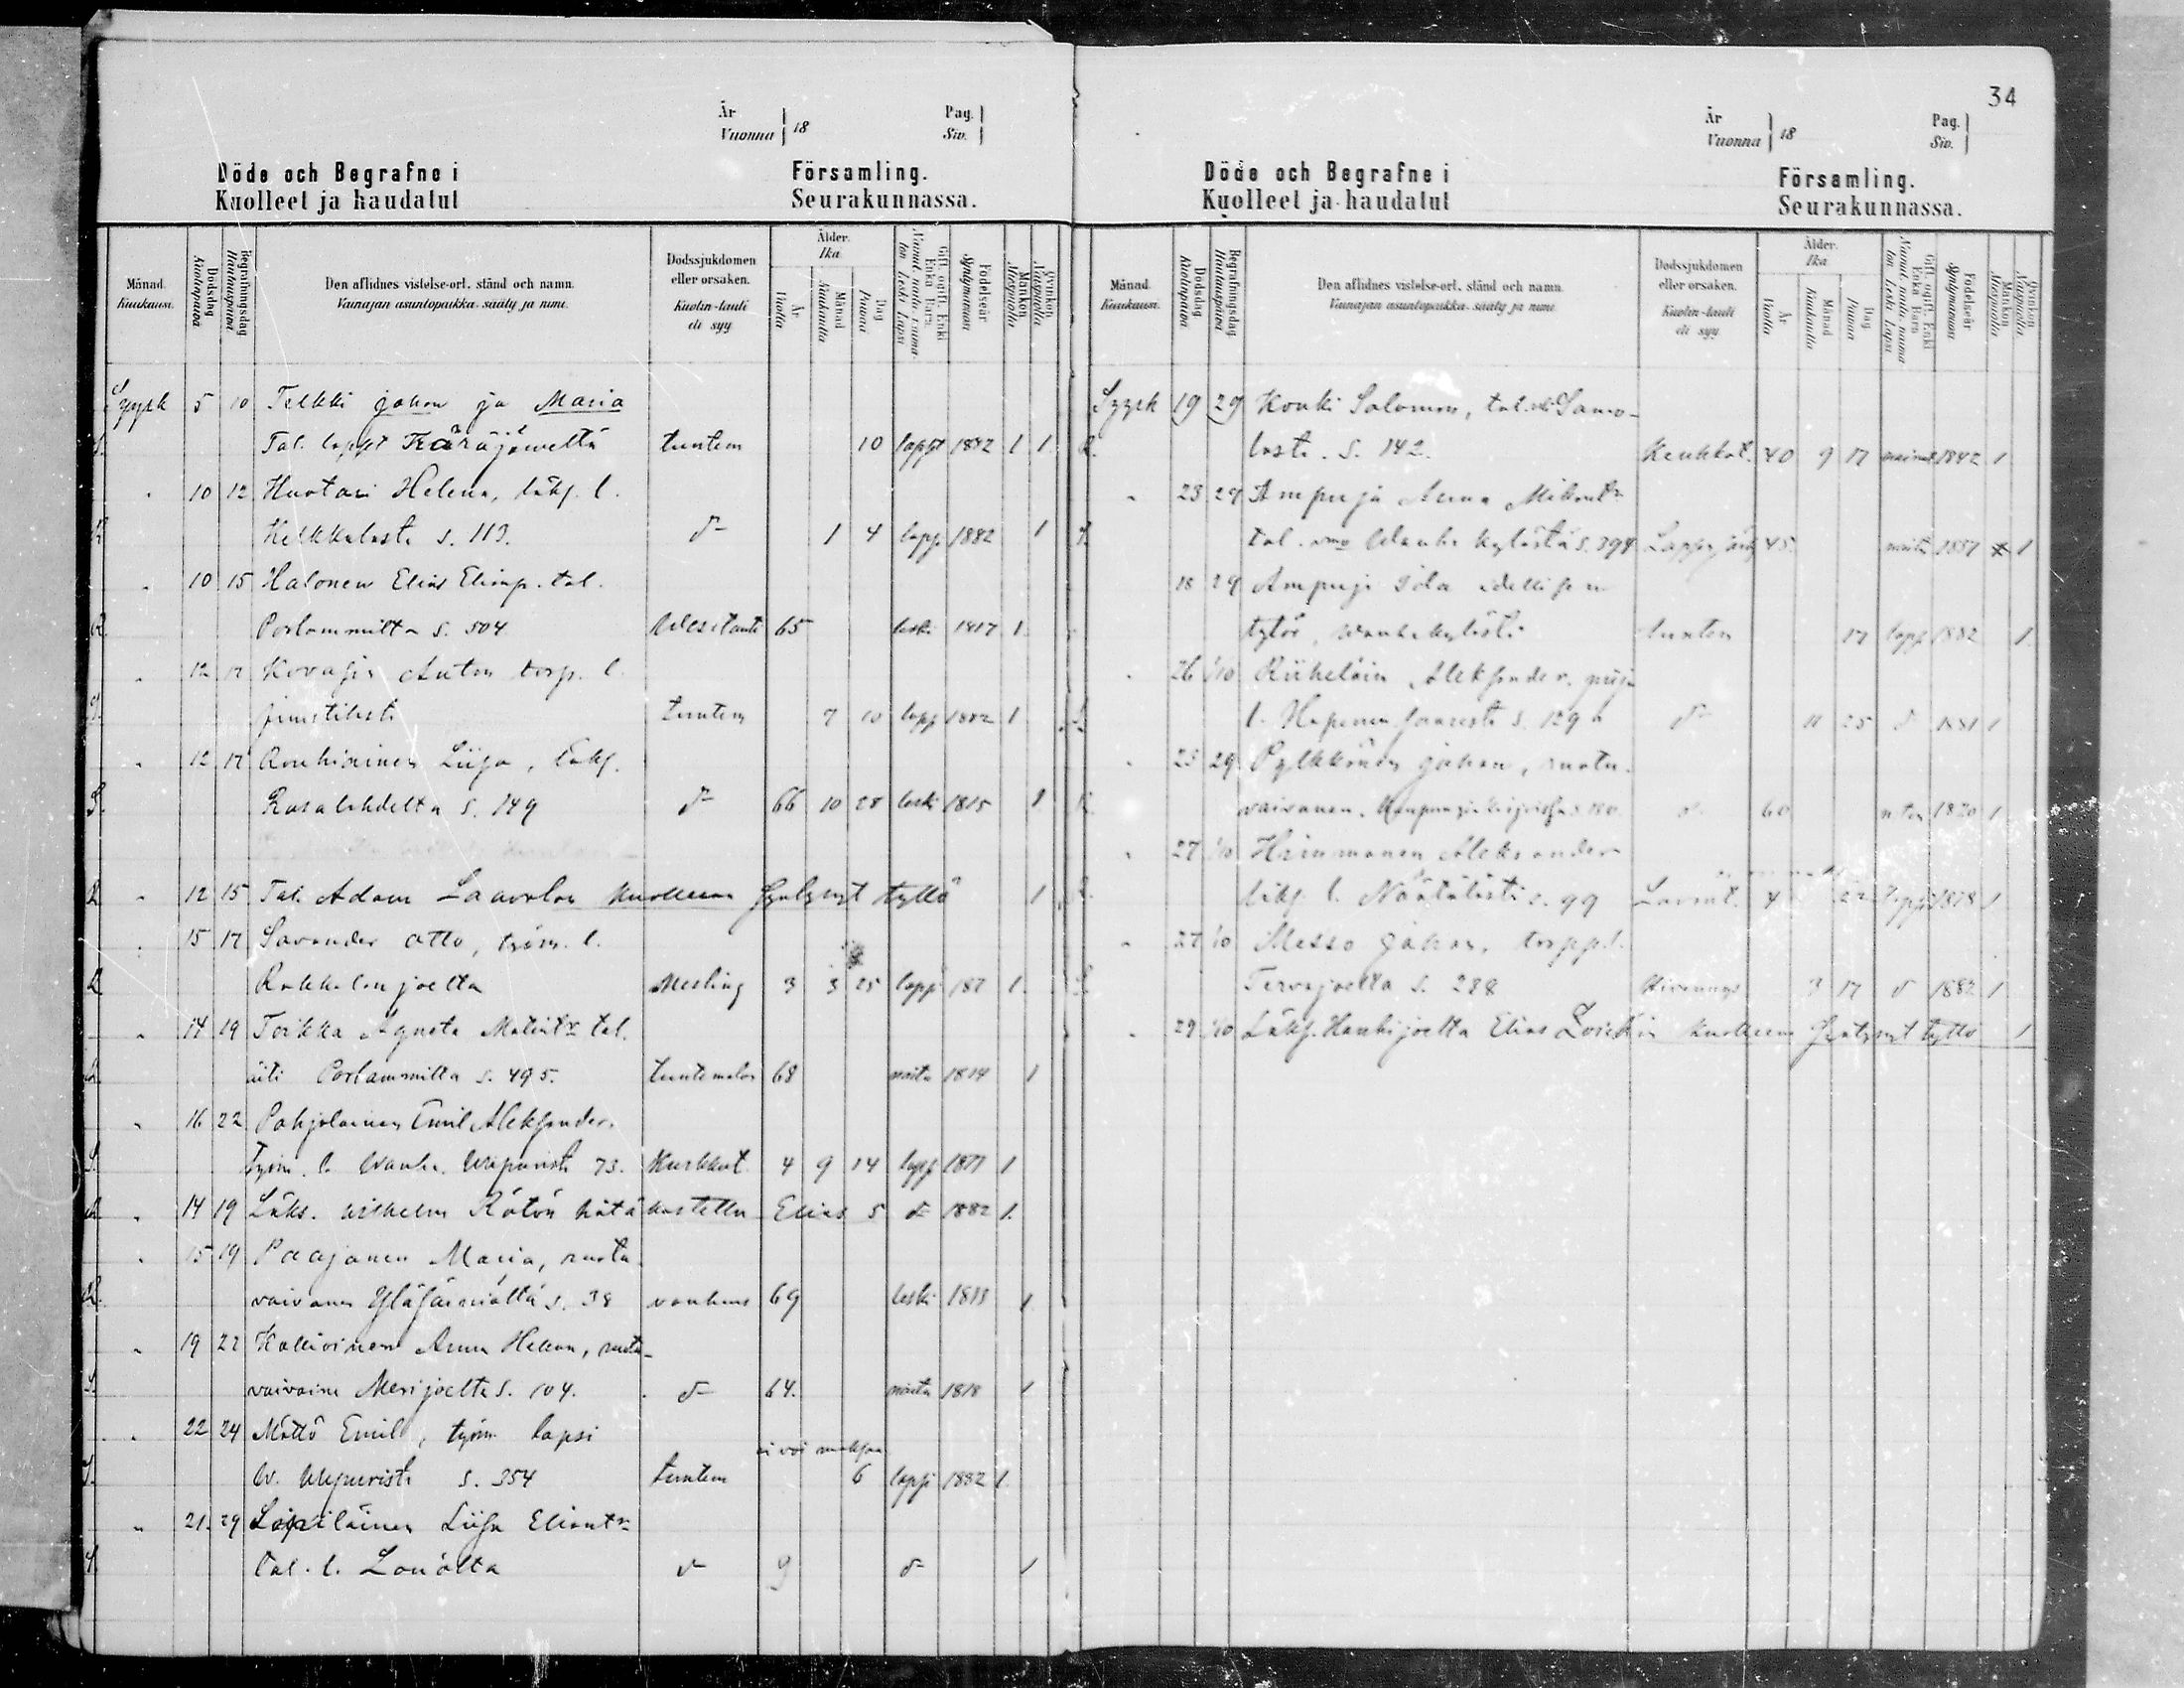 År
Vuonna 18
Pag.
Siv.
Döde och Begrafne i Församling.
Kuolleet ja haudatut Seurakunnassa.
Månad. Kuukausi.
Dödsdag Kuolinpäivä
Begrafningsdag Hautauspäivä
Den aflidnes vistelse-ort, stånd och namn.
Vainajan asuntopaikka, sääty ja nimi.
Dödssjukdomen eller orsaken.
Kuolin-tauti eli syy
Ålder. Ikä
År Vuotta
Månad Kuukautta
Dag Päivää
Födelseår Syntymävuosi
Mankön Miespuolia
Qvinkön Vaispuolia
Syysk 5 10 Telkki Johan ja Maria
Tal. lapset Käräjäweltä tuntem 10 lapset 1882 1 1
10 12 Huotari Helena, läks. l.
Kelkkalasta s. 113. d:o 1 4 laps 1882 1
10 15 Halonen Elias Eliasp. tal.
Porlammilta s. 504 Wesitauti 65 leski 1817 1
12 17 Anton torp. l.
tuntem 7 10 laps 1882 1
12 17 Rouhiainen Liisa, läks.
Rasalahdelta s. 149 d:o 66 10 28 leski 1815 1
12 15 Tal. Adam Laavolan kuolleena syntynyt tyttö 1
15 17 Savander Otto, työm. l.
Rakkalanjoelta 3 3 25 laps 187 1
14 19 Toikka Agneta Matint:r tal.
äiti Porlammilta s. 495. tuntematon 68 naitu 1814 1
16 22 Pohjolainen Emil Aleksander.
Työm. l. Wanh. Wiipurista 73. Kurkkut. 4 9 14 laps 1877 1
14 19 Läks. Wilhelm Rötön hätä kastettu Elias 5 d:o 1882 1
15 19 Paajanen Maria, ruotu
vaivanen Yläsäiniöltä s. 38 vanhuus 69 leski 1813 1
19 22 Anna Helena, ruotu-
vaivainen Merijoelta s. 104. d:o 64. naitu 1818 1
22 24 Möttö Emil, työm. lapsi
ei voi maksaa
W. Wiipurista s. 354 tuntem 6 lapsi 1882 1
21 29 Liisa Eliant:r
tal. l. Louölta d:o 9 d:o 1
34
År
Vuonna 18
Pag.
Siv.
Döde och Begrafne i Församling.
Kuolleet ja haudatut Seurakunnassa.
Månad. Kuukausi.
Dödsdag Kuolinpäivä
Begrafningsdag Hautauspäivä
Den aflidnes vistelse-ort, stånd och namn.
Vainajan asuntopaikka, sääty ja nimi.
Dödssjukdomen eller orsaken.
Kuolin-tauti eli syy
Ålder. Ikä
År Vuotta
Månad Kuukautta
Dag Päivää
Födelseår Syntymävuosi
Mankön Miespuolia
Qvinkön Vaispuolia
Syysk 19 29 Konki Salomon, tal. Samo-
lasta. s. 142. Keuhkot. 40 9 17 nainut 1842 1
23 29 Ampuja Anna Mikont:r
tal. vmo Wanha kylästä s. 394 45 1
18 29 Ampuja Ida edellisen
tytär, Wanhakylästä tuntem 17 laps 1882 1
26 1/10 Riiheläin Aleksander.
l. Hapenensaaresta s. 129 d:o 11 25 d:o 1881 1
23 29 Pylkkönen Johan, ruotu-
vaivanen. d:o 60 1820 1
27 1/10 Hämmänen Aleksander
läks. l. Näätälästä s. 99 4 22 lapsi 1878 1
27 1/10 Messo Johan, torpp. l.
Tervajoelta s. 288 3 17 d:o 1882 1
29 1/10 Läks. Hanhijoelta Elias kuolleena syntynyt tyttö 1